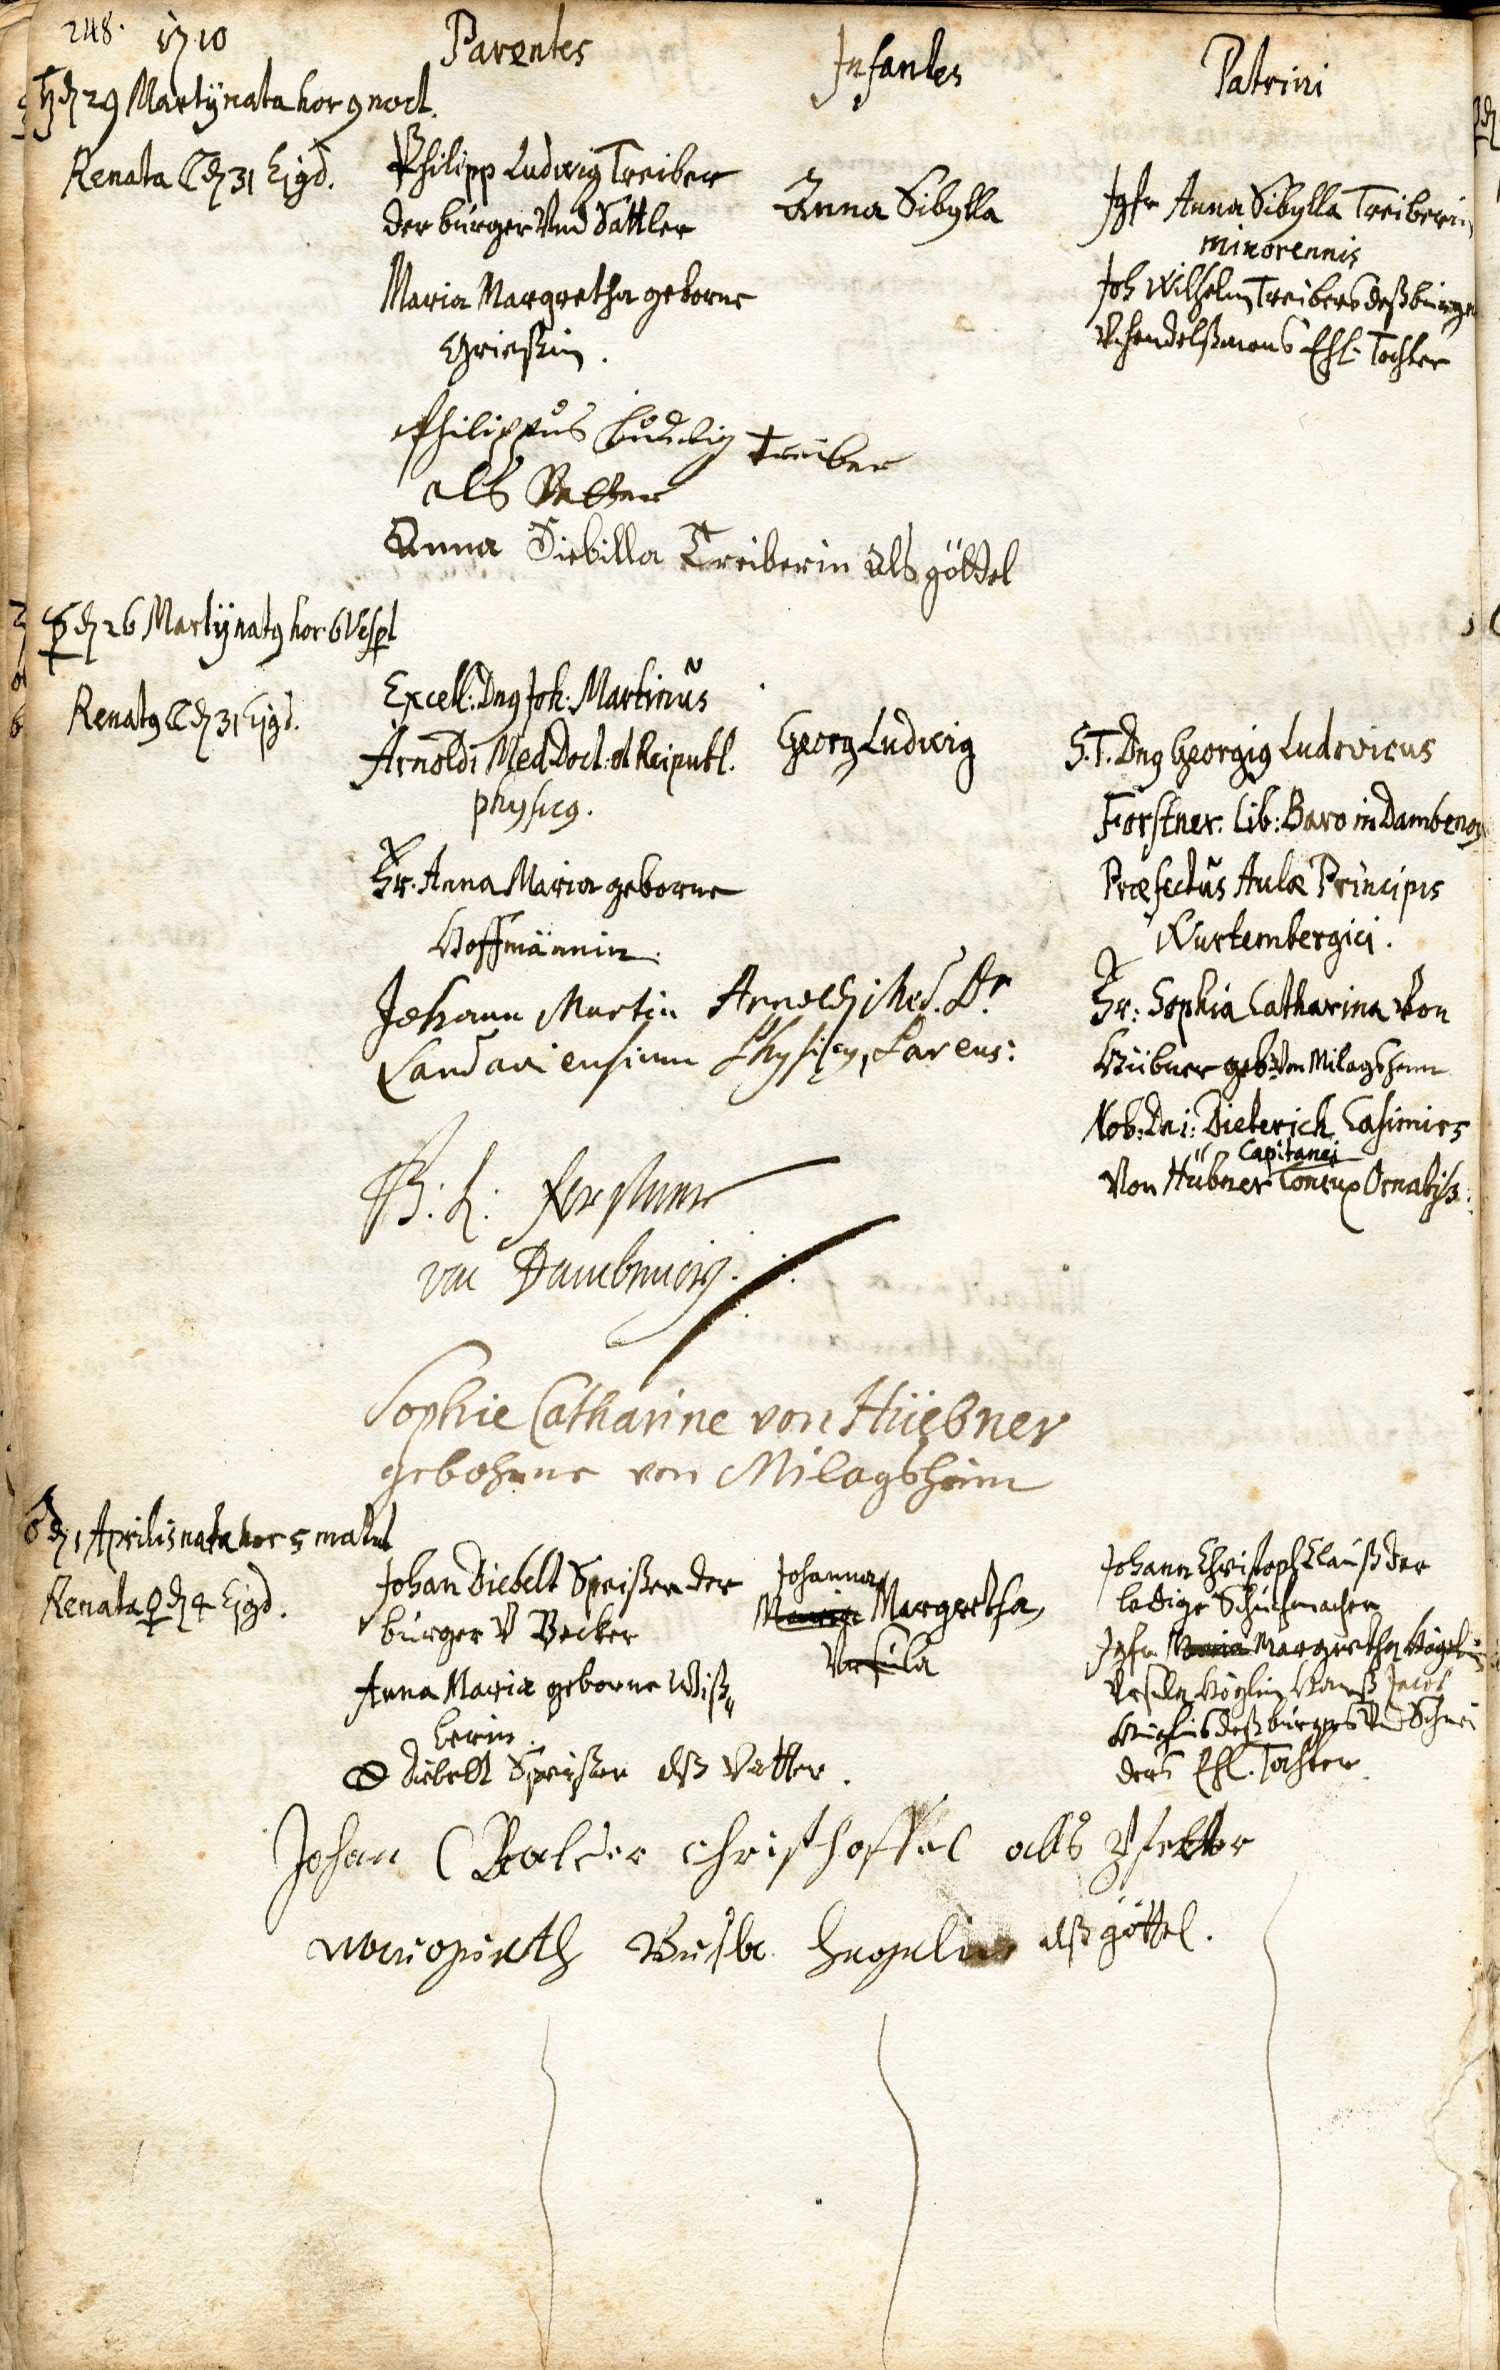 248. 1710
Parentes
Infantes
Patrini
♄ d 29 Martij nata hor 9 noct.
Renata ☾ d 31 Ejgd.
Philipp Ludwig Treiber
der burger Vnd Sattler
Maria Margretha geborne
Anna Sibylla
Jgfr Anna Sibylla Treiberin
minorennis
Joh Wilhelm Treibers deß burgers
V handelßmans Ehl. Tochter
Philippus Ludwig Treiber
als Vatter
Anna Siebilla Treiberin als göttel
d 26 Martij natq hor 6 Vesp
Renatq ☾ d 31 Ejgd.
Excell: Dnq Joh: Martinus
Arnoldi Med Doct: et Reipubl.
physicq.
Fr. Anna Maria geborne
Hoffmännin.
Georg Ludwig
S. T. Dnq Georgiq Ludovicus
Forstner. Lib: Baro in Dambenoy
Præfectus Aulæ Principis
Wurtembergici.
Fr: Sophia Catharina Von
Hübner geb: Von Milagsheim
Nob: Dni: Dieterich Casimirs
Capitanei
Von Hübner Conjux Ornatiss:
Johann Martin Arnoldi Med. Dr
Landaviensium Physicq, Parens:
G: L: Forstner
von Dambenoy.
Sophie Catharine von Hüebner
gebohrne von Milagsheim
d 1 Aprilis nata hor 5 matut
Renata ♀ d 4 Ejgd.
Johan Diebelt Speißer der
burger V Becker
Anna Maria geborne Wiß„
lerin.
Johanna
Maria Margretha
Ursula
Johann Christoph Clauß der
ledige Schuhmacher
Jgfr Maria Margretha
Ursula Höglin Hanß Jacob
deß burgers Vnd Schnei
ders Ehl. Tochter
Diebelt Speißer alß Vatter.
Johan Christhoffel alls Pfetter
alß göttel.